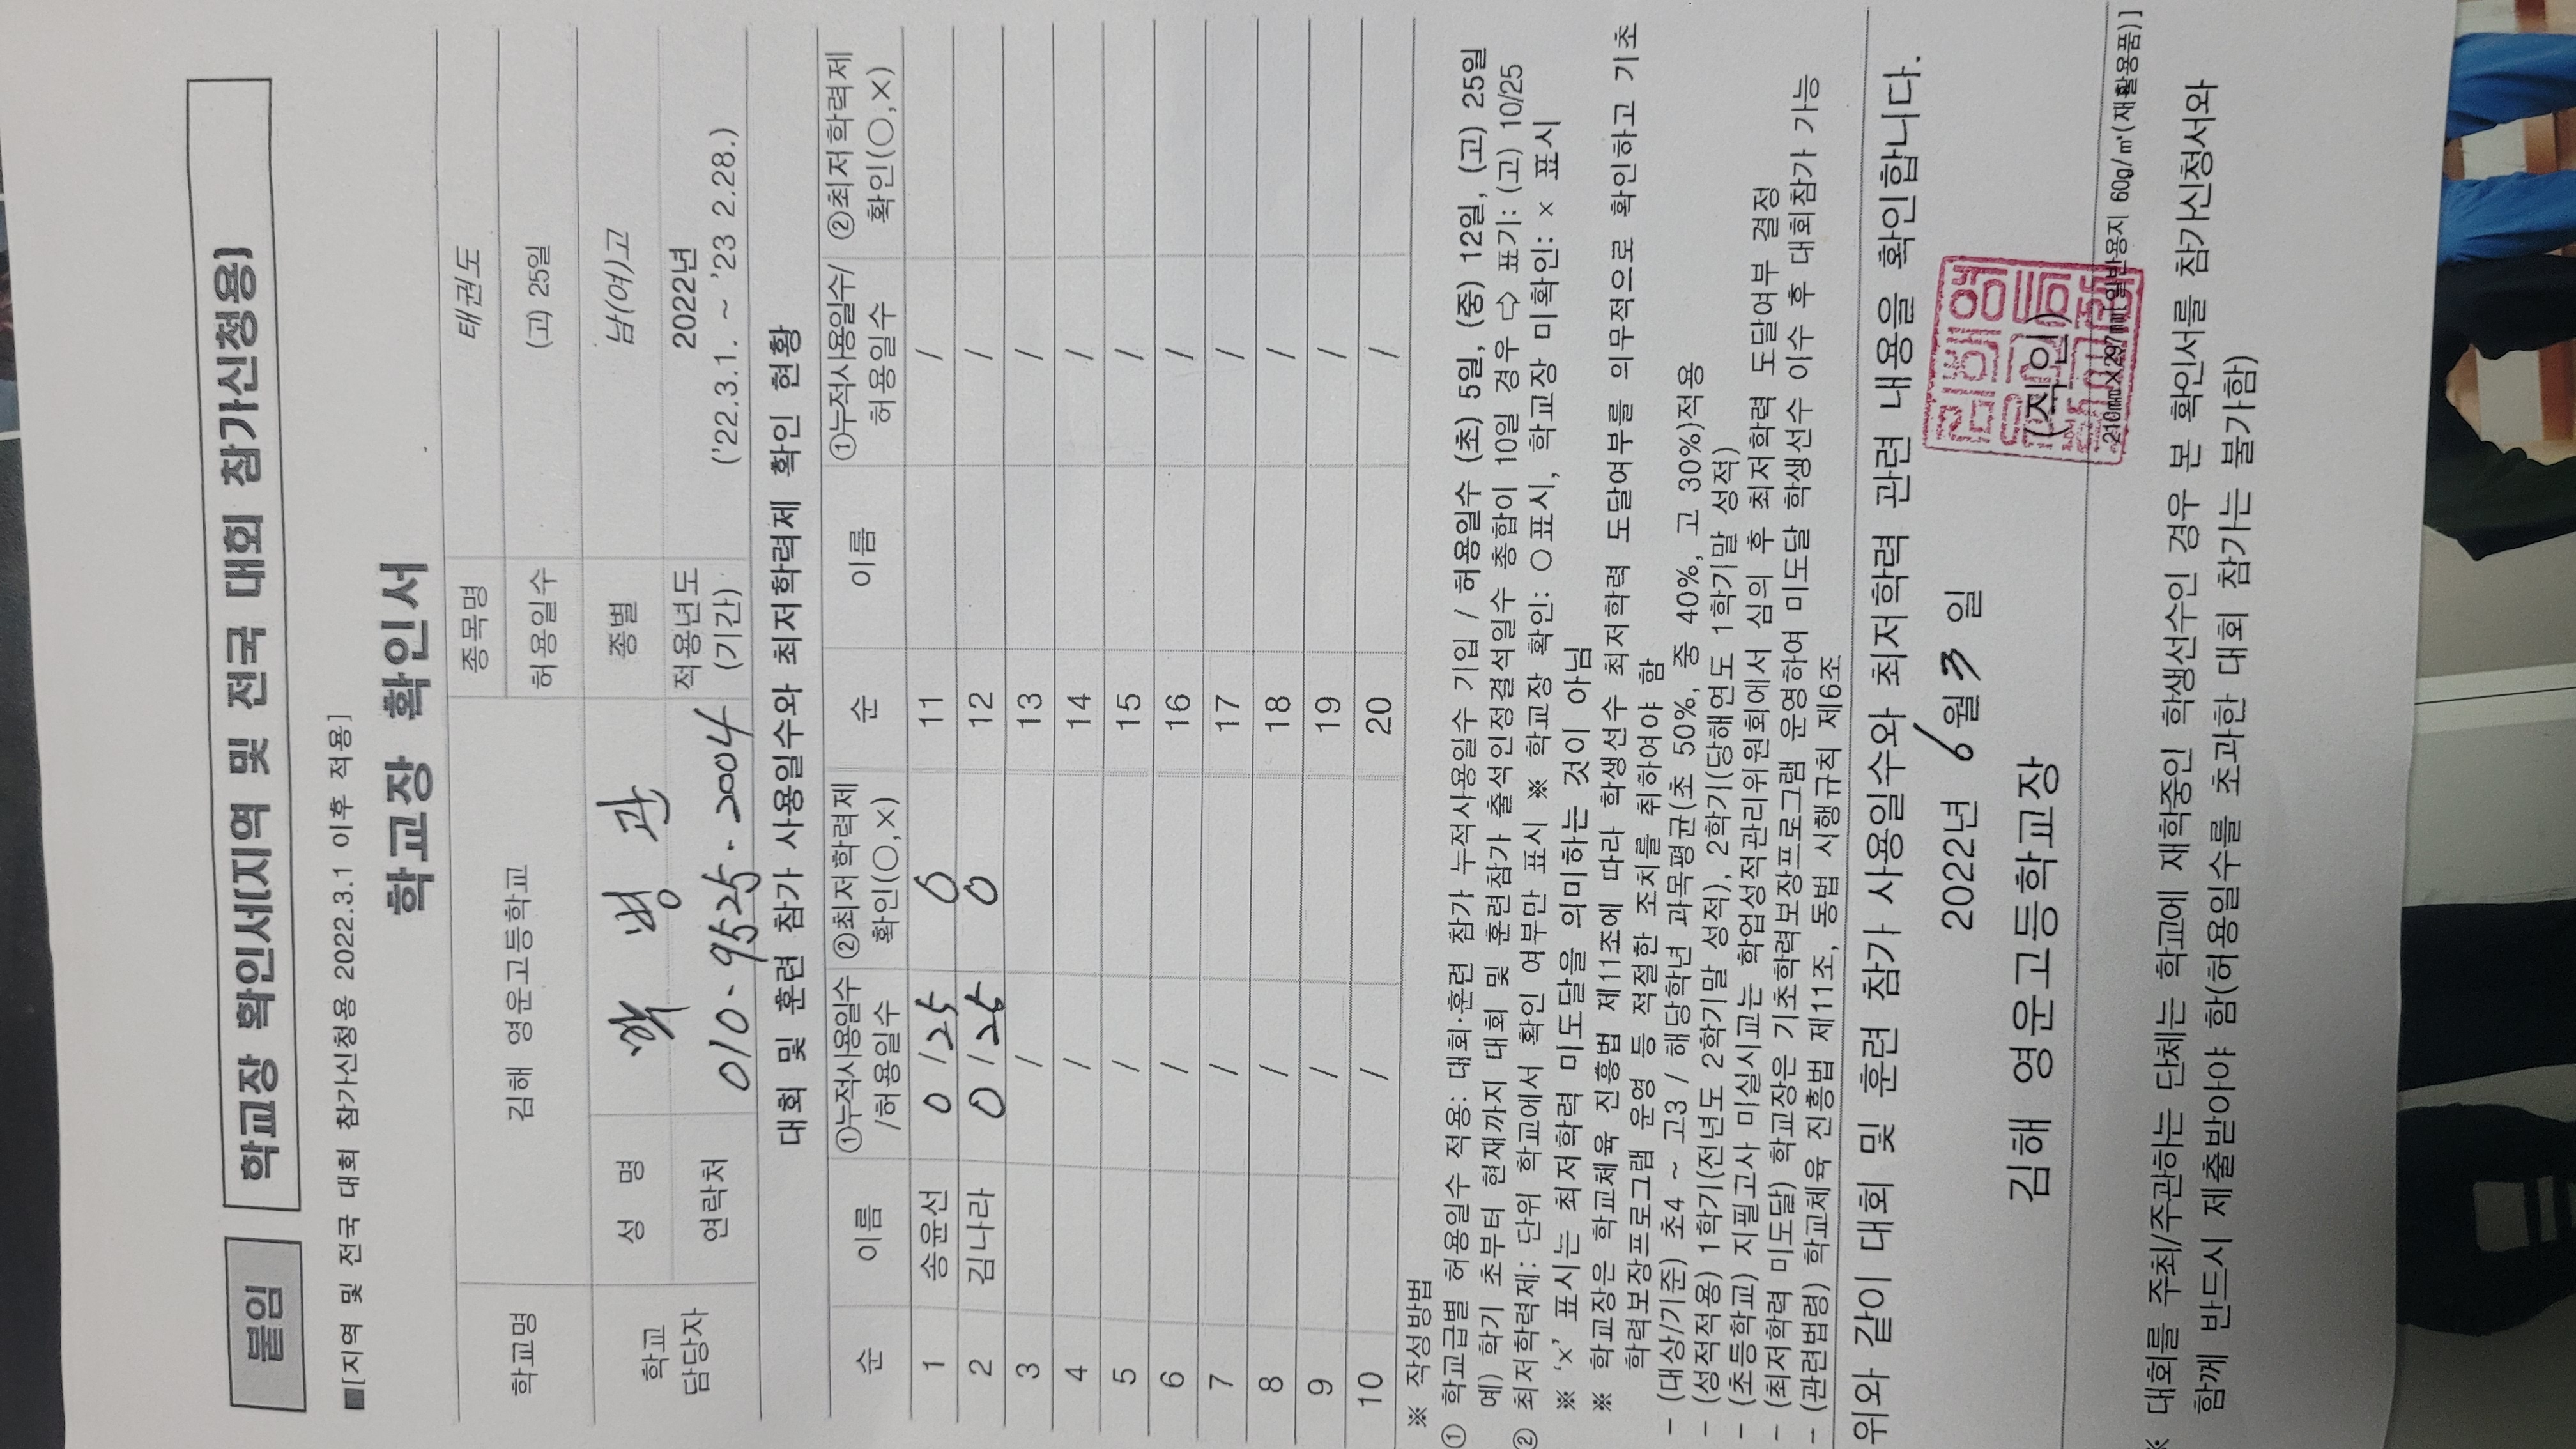 붙임 학교장 확인서(지역 및 전국 대회 참가신청용)
■[지역 및 전국 대회 참가신청용 2022.3.1 이후 적용]
학교장 확인서
학교명 김해 영운고등학교 종목명 태권도
허용일수 (고) 25일
학교 담당자 성 명 병관 종별 남(여)고
연락처 010-9525-2004 적용년도 (기간) 2022년 ('22.3.1. ~ '23 2.28.)
대회 및 훈련 참가 사용일수와 최저학력제 확인 현황
순 이름 ①누적사용일수 /허용일수 ②최저학력제 확인(○,×) 순 이름 ①누적사용일수/ 허용일수 ②최저학력제 확인(○,×)
1 송윤선 0 / 25 0 11 /
2 김나라 0 / 25 0 12 /
3 / 13 /
4 / 14 /
5 / 15 /
6 / 16 /
7 / 17 /
8 / 18 /
9 / 19 /
10 / 20 /
※ 작성방법
① 학교급별 허용일수 적용: 대회·훈련 참가 누적사용일수 기입 / 허용일수 (초) 5일, (중) 12일, (고) 25일
예) 학기 초부터 현재까지 대회 및 훈련참가 출석인정결석일수 총합이 10일 경우 ⇨ 표기: (고) 10/25
② 최저학력제: 단위 학교에서 확인 여부만 표시 ※ 학교장 확인: ○ 표시, 학교장 미확인: × 표시
※ ‘×’ 표시는 최저학력 미도달을 의미하는 것이 아님
※ 학교장은 학교체육 진흥법 제11조에 따라 학생선수 최저학력 도달여부를 의무적으로 확인하고 기초
학력보장프로그램 운영 등 적절한 조치를 취하여야 함
- (대상/기준) 초4 ~ 고3 / 해당학년 과목평균(초 50%, 중 40%, 고 30%)적용
- (성적적용) 1학기(전년도 2학기말 성적), 2학기(당해연도 1학기말 성적)
- (초등학교) 지필고사 미실시교는 학업성적관리위원회에서 심의 후 최저학력 도달여부 결정
- (최저학력 미도달) 학교장은 기초학력보장프로그램 운영하여 미도달 학생선수 이수 후 대회참가 가능
- (관련법령) 학교체육 진흥법 제11조, 동법 시행규칙 제6조
위와 같이 대회 및 훈련 참가 사용일수와 최저학력 관련 내용을 확인합니다.
2022년 6월 3 일
김해 영운고등학교장 (직인)
210㎜×297㎜(일반용지 60g/㎡(재활용품)]
※ 대회를 주최/주관하는 단체는 학교에 재학중인 학생선수인 경우 본 확인서를 참가신청서와
함께 반드시 제출받아야 함(허용일수를 초과한 대회 참가는 불가함)